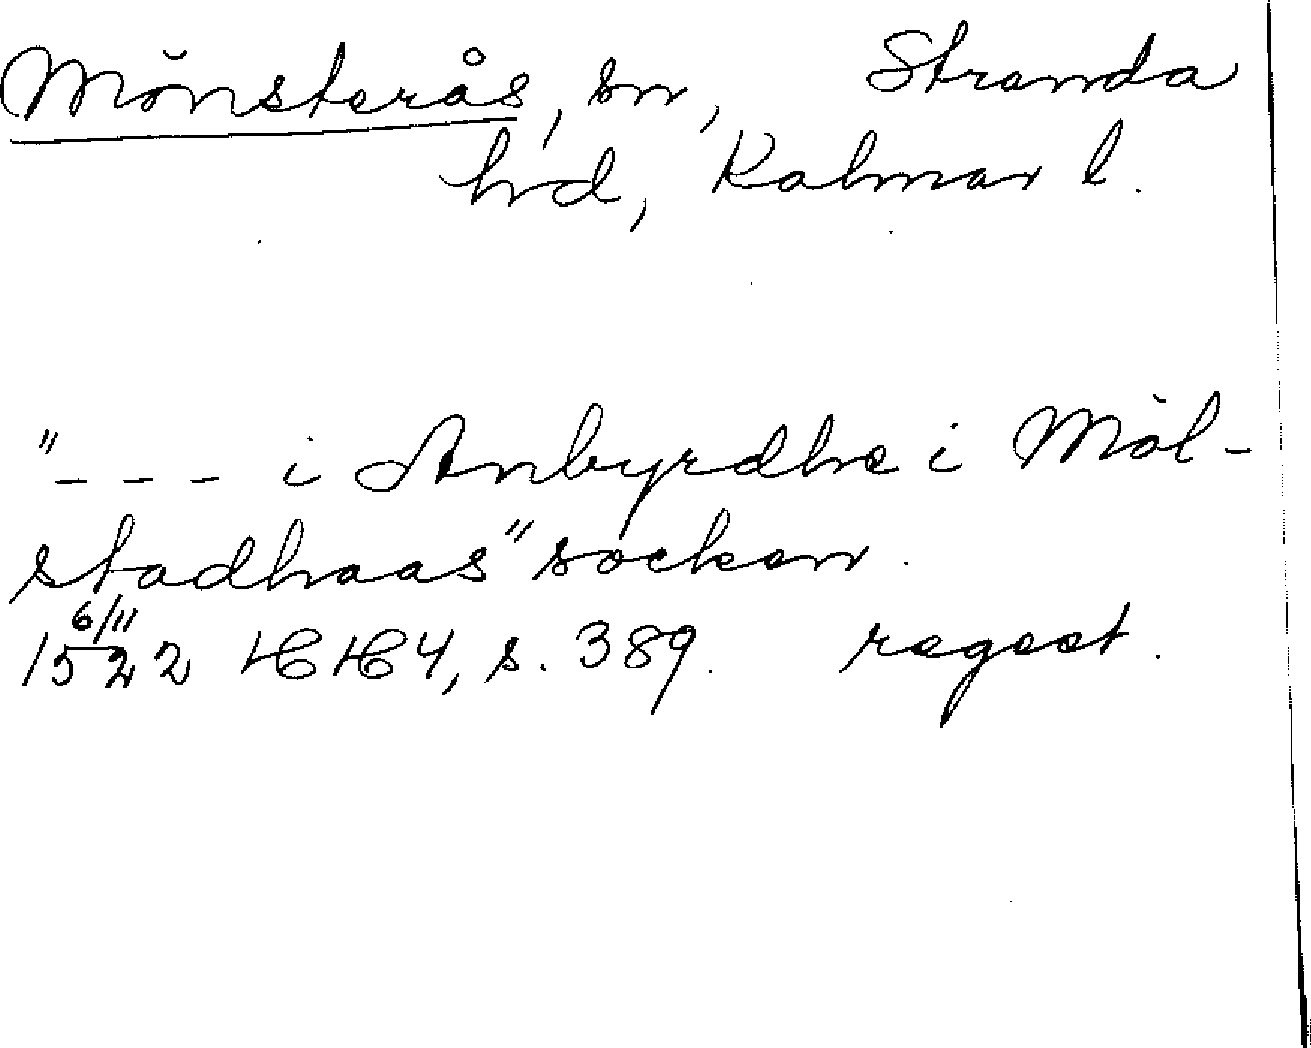 Mönsterås, sn, Stranda
hrd, Kalmar l.
"--- i Anbyrdhe i Möl-
stadhaas" socken.
6/11
1522 HH 4, s. 389. regest.